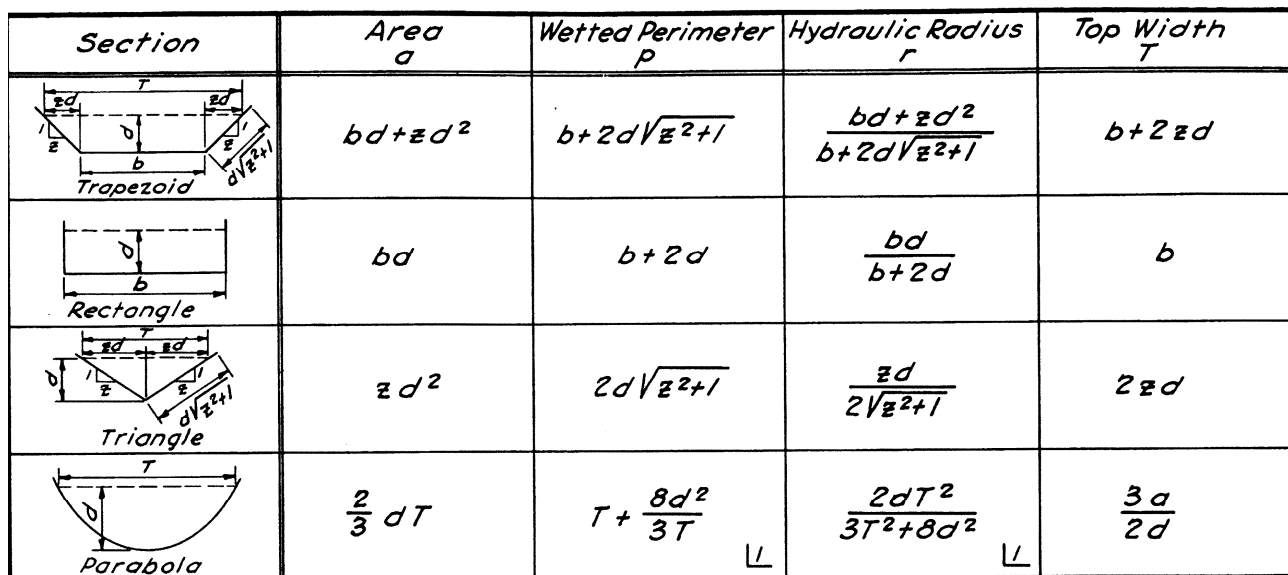 Section Area a Wetted Perimeter p Hydraulic Radius r Top Width T
T
zd zd
d
1 z 1 z
b
d√z²+1
Trapezoid
bd+zd²
b+2d√z²+1
bd+zd² / b+2d√z²+1
b+2zd
d
b
Rectangle
bd
b+2d
bd / b+2d
b
T
zd zd
d
1 z 1 z
d√z²+1
Triangle
zd²
2d√z²+1
zd / 2√z²+1
2zd
T
d
Parabola
2/3 dT
T + 8d²/3T 1
2dT² / 3T²+8d² 1
3a / 2d